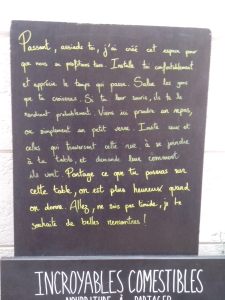 Passant, assieds toi, j'ai créé cet espace pour
que nous en profitions tous. Installe toi confortablement
et apprécie le temps qui passe. Salue les gens
que tu croiseras. Si tu leur souris, ils te le
rendront probablement. Viens ici prendre un repas,
ou simplement un petit verre. Invite ceux et
celles qui traversent cette rue, à se joindre
à ta table, et demande leur comment
ils vont. Partage ce que tu poseras sur
cette table, on est plus heureux quand
on donne. Allez, ne sois pas timide, je te
souhaite de belles rencontres !
INCROYABLES COMESTIBLES
NOURRITURE À PARTAGER